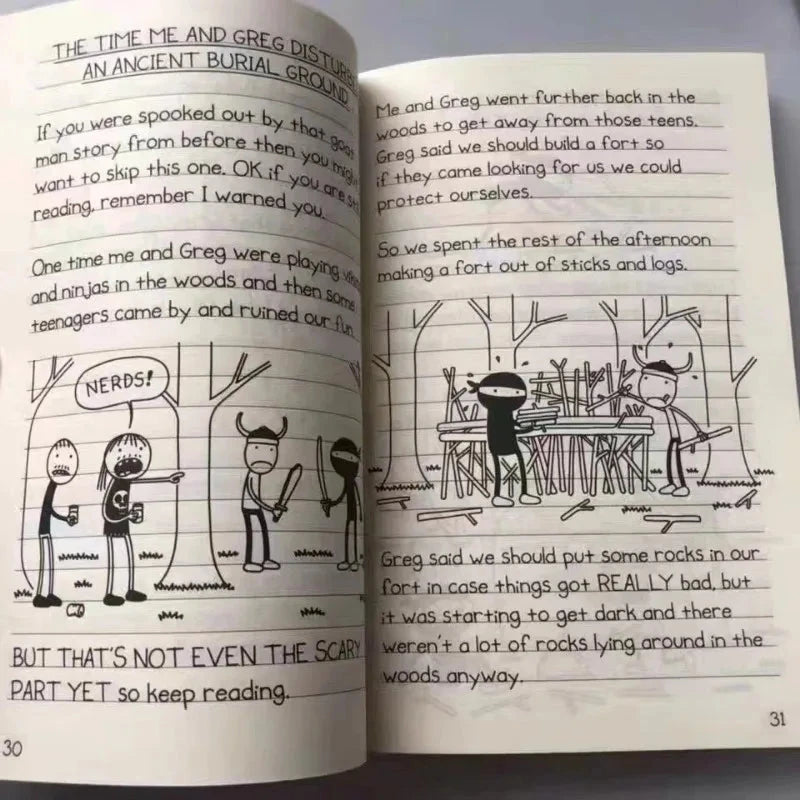 THE TIME ME AND GREG DISTURBED
AN ANCIENT BURIAL GROUND
If you were spooked out by that goat
man story from before then you might
want to skip this one. OK if you are still
reading, remember I warned you.
One time me and Greg were playing
and ninjas in the woods and then some
teenagers came by and ruined our fun.
NERDS!
BUT THAT'S NOT EVEN THE SCARY
PART YET so keep reading.
30
Me and Greg went further back in the
woods to get away from those teens.
Greg said we should build a fort so
if they came looking for us we could
protect ourselves.
So we spent the rest of the afternoon
making a fort out of sticks and logs.
Greg said we should put some rocks in our
fort in case things got REALLY bad, but
it was starting to get dark and there
weren't a lot of rocks lying around in the
woods anyway.
31